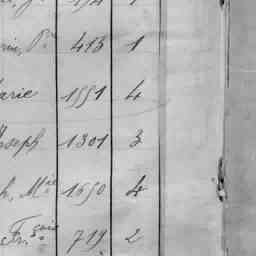 413 1
arie 1551 4
Joseph 1301 3
h, Mie 1650 4
Fçois 719 2